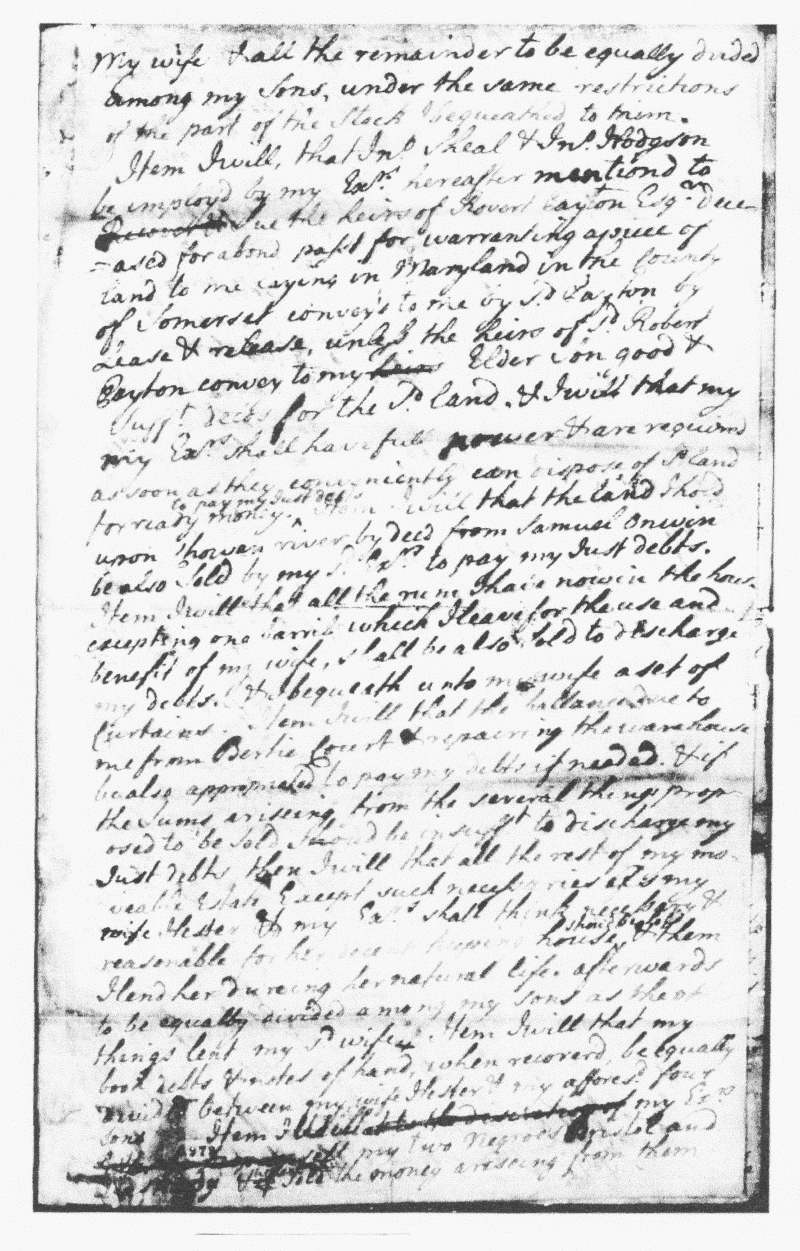 My wife & all the remainder to be equally divided
among my Sons, under the same restrictions
of the part of the Stock I bequeathed to them.
Item I will, that Jno Sheal & Jno Hodgson
be imployd by my Exrs hereafter mentiond to
sue the heirs of Robert Layton Esqr Dece-
-ased for a bond past for warranting a piece of
Land to me Laying in Maryland in the County
of Somerset convey'd to me by Sd Layton by
Lease & release, unless the heirs of Sd Robert
Layton convey to my heirs Elder Son good &
Sufft deeds for the Sd land. & I will that my
my Exrs shall have full power & are required
as soon as they conveniently can dispose of Sd land
to pay my Just debts
for ready money. Item I will that the land I hold
upon Chowan river by deed from Samuel Onwin
be also Sold by my Sd Exrs to pay my Just debts.
Item I will that all the rum I have now in the house
excepting one barril which I leave for the use and
benefit of my wife, shall be also Sold to discharge
my debts. & I bequeath unto my wife a set of
Curtains. Item I will that the ballance due to
me from Bertie Court & repairing the warehouse
be also appropriated to pay my debts if needed. & if
the Sums ariseing from the several things prop-
osed to be Sold Should be insufft to discharge my
Just debts then I will that all the rest of my mo-
veable Estate Except such necessaries as my
wife Hester & my Exrs shall think necessary &
reasonable for her decent keeping house, & them
I lend her dureing her natural life. afterwards
to be equally divided among my sons as the
things lent my Sd wife. Item I will that my
book debts & notes of hand, when recoverd, be equally
divided between my wife Hester & my aforesd four
sons Item I will that to the discretion of my Exrs
sell my two negroes Bristol and
& Sold the money ariseing from them